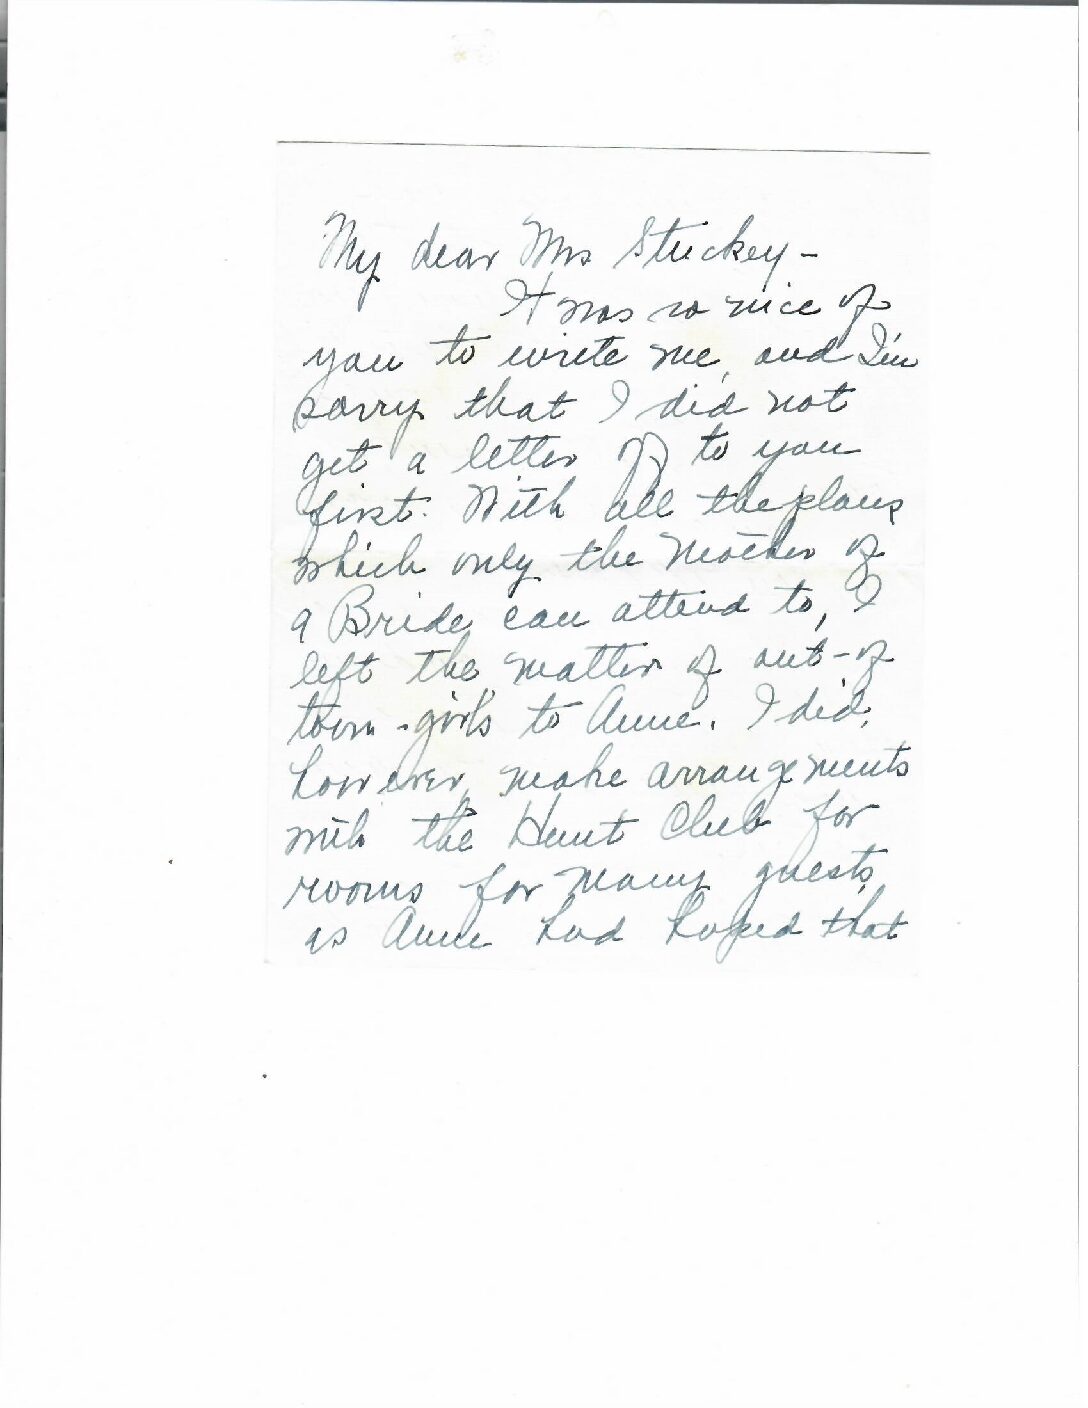 My dear Mrs Stuckey –
It was so nice of
you to write me, and I'm
sorry that I did not
get a letter off to you
first. With all the plans
which only the Mother of
a Bride can attend to, I
left the matter of out-of
town-girls to Anne. I did,
however, make arrangements
with the Hunt Club for
rooms for many guests,
as Anne had hoped that